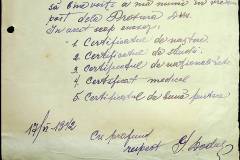 să binevoiți a mă numi în vre-un
post dela
În acest scop anexez
1. Certificatul de naștere
2. Certificatul de studii
3. Certificatul de naționalitate
4. Certificat medical
5. Certificatul de bună purtare
17/VI-1942
Cu profund
respect